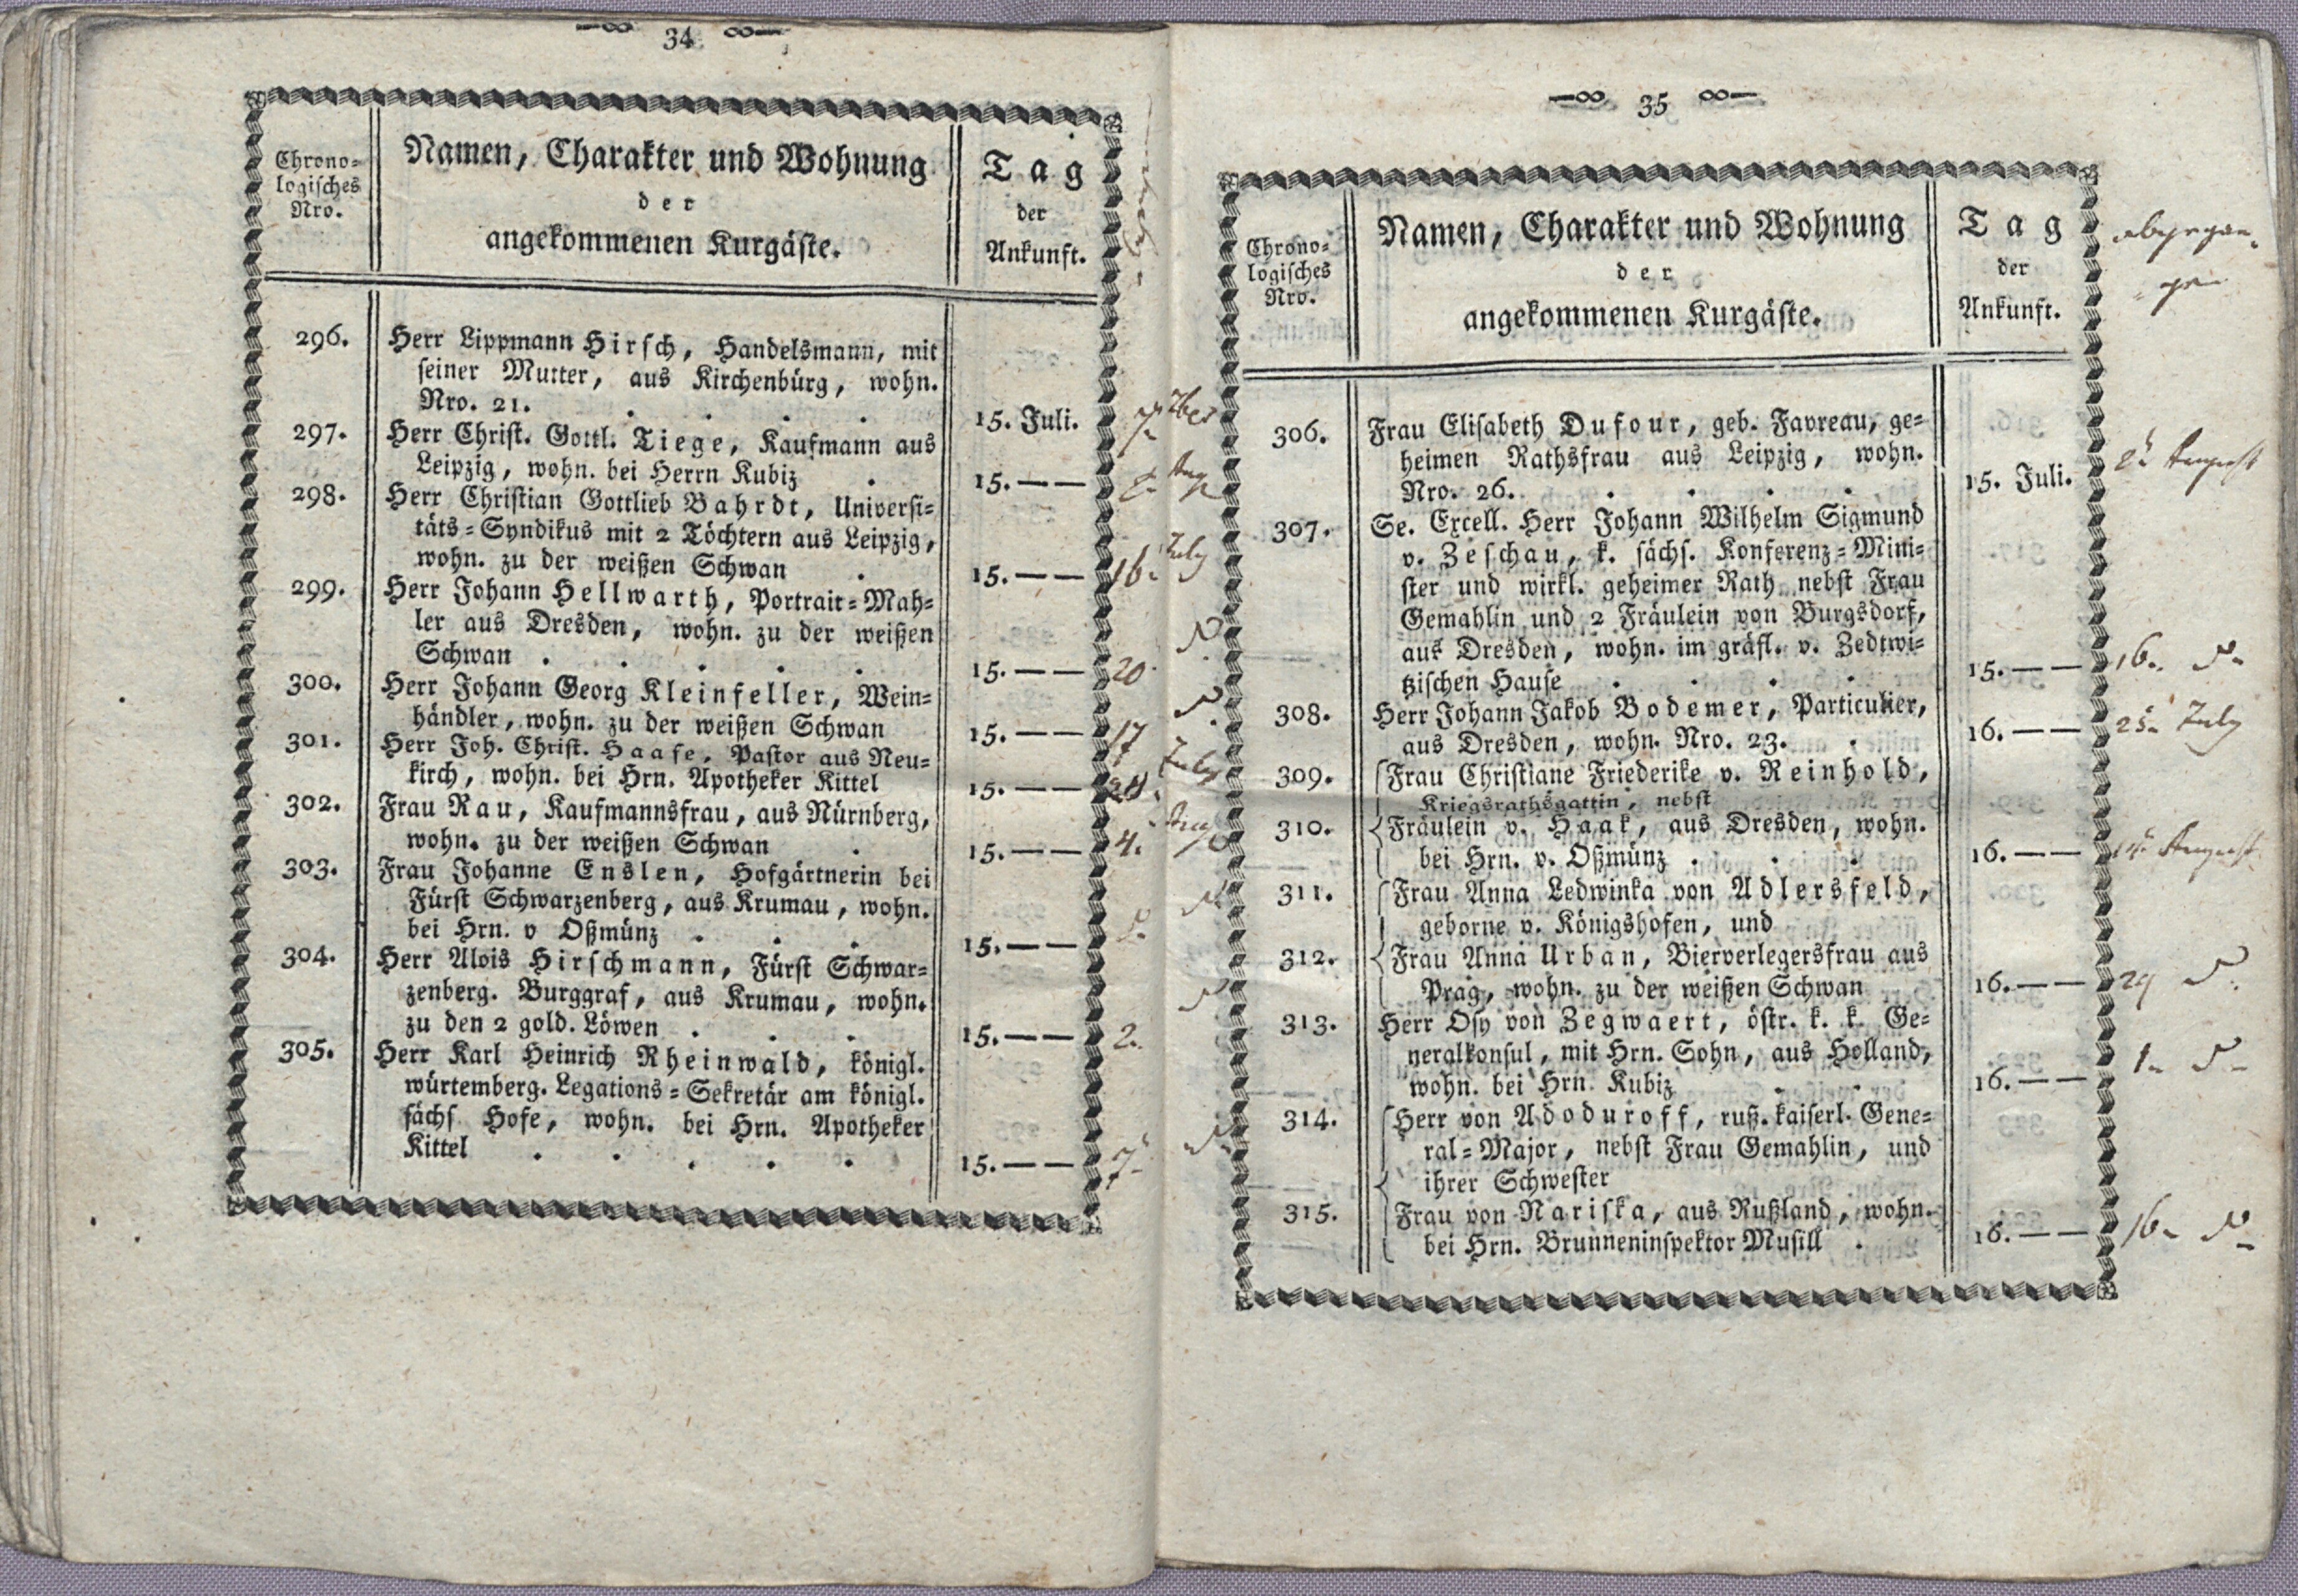 34
Chrono-
logisches
Nro.
Namen, Charakter und Wohnung
der
angekommenen Kurgäste.
Tag
der
Ankunft.
296. Herr Lippmann Hirsch, Handelsmann, mit
seiner Mutter, aus Kirchenbürg, wohn.
Nro. 21. . . . . 15. Juli.
297. Herr Christ. Gottl. Tiege, Kaufmann aus
Leipzig, wohn. bei Herrn Kubiz . 15. — — 2. Aug
298. Herr Christian Gottlieb Bahrdt, Universi-
täts-Syndikus mit 2 Töchtern aus Leipzig,
wohn. zu der weißen Schwan . 15. — — 16. July
299. Herr Johann Hellwarth, Portrait-Mah-
ler aus Dresden, wohn. zu der weißen
Schwan . . . . . 15. — — 20.
300. Herr Johann Georg Kleinfeller, Wein-
händler, wohn. zu der weißen Schwan 15. — — 17
301. Herr Joh. Christ. Haase, Pastor aus Neu-
kirch, wohn. bei Hrn. Apotheker Kittel 15. — — July
302. Frau Rau, Kaufmannsfrau, aus Nürnberg,
wohn. zu der weißen Schwan . 15. — — 4. Aug
303. Frau Johanne Enslen, Hofgärtnerin bei
Fürst Schwarzenberg, aus Krumau, wohn.
bei Hrn. v Oßmünz . . . 15. — —
304. Herr Alois Hirschmann, Fürst Schwar-
zenberg. Burggraf, aus Krumau, wohn.
zu den 2 gold. Löwen . . . 15. — — 2.
305. Herr Karl Heinrich Rheinwald, königl.
würtemberg. Legations-Sekretär am königl.
sächs Hofe, wohn. bei Hrn. Apotheker
Kittel . . . . . 15. — — 7.
35
Chrono-
logisches
Nro.
Namen, Charakter und Wohnung
der
angekommenen Kurgäste.
Tag
der
Ankunft.
abgegan-
gen
306. Frau Elisabeth Dufour, geb. Favreau, ge-
heimen Rathsfrau aus Leipzig, wohn.
Nro. 26. . . . . 15. Juli. 2. August
307. Se. Excell. Herr Johann Wilhelm Sigmund
v. Zeschau, k. sächs. Konferenz-Mini-
ster und wirkl. geheimer Rath nebst Frau
Gemahlin und 2 Fräulein von Burgsdorf,
aus Dresden, wohn. im gräfl. v. Zedtwi-
tzischen Hause . . . . 15. — — 16.
308. Herr Johann Jakob Bodemer, Particulier,
aus Dresden, wohn. Nro. 23. . 16. — — 25. July
309. Frau Christiane Friederike v. Reinhold,
Kriegsrathsgattin, nebst
310. Fräulein v. Haak, aus Dresden, wohn.
bei Hrn. v. Oßmünz . . . 16. — — August
311. Frau Anna Ledwinka von Adlersfeld,
geborne v. Königshofen, und
312. Frau Anna Urban, Bierverlegersfrau aus
Prag, wohn. zu der weißen Schwan 16. — — 29
313. Herr Osy von Zegwaert, östr. k. k. Ge-
neralkonsul, mit Hrn. Sohn, aus Holland,
wohn. bei Hrn. Kubiz . . 16. — — 1.
314. Herr von Adoduroff, ruß. kaiserl. Gene-
ral-Major, nebst Frau Gemahlin, und
ihrer Schwester
315. Frau von Nariska, aus Rußland, wohn.
bei Hrn. Brunneninspektor Musill . 16. — — 16.